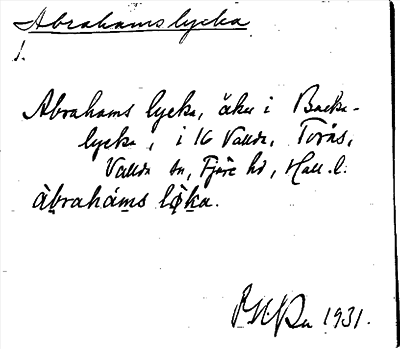 Abrahamslycka
1.
Abrahams lycka, åker i Backa-
lycka, i 16 Vallda, Torås,
Vallda sn, Fjäre hd, Hall. l.
àbrahám̱s lø̀ḵa.
1931.